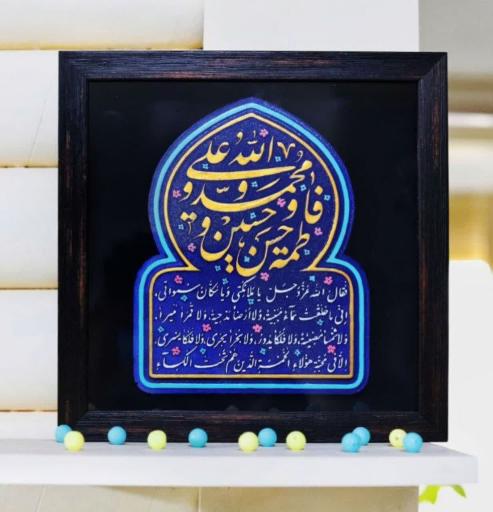 الله و محمد و علی و فاطمة و حسن و حسین
فقال الله عز و جل یا ملائکتی و یا سکان سمواتی
انی ما خلقت سماء مبنیة و لا ارضا مدحیة و لا قمرا منیرا
و لا شمسا مضیئة و لا فلکا یدور و لا بحرا یجری و لا فلکا یسری
الا فی محبة هؤلاء الخمسة الذین هم تحت الکساء